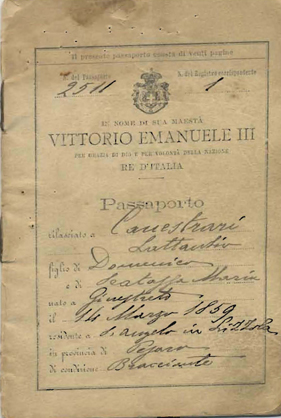 Il presente passaporto consta di venti pagine
N. del Passaporto N. del Registro corrispondente
2511 1
IN NOME DI SUA MAESTÀ
VITTORIO EMANUELE III
PER GRAZIA DI DIO E PER VOLONTÀ DELLA NAZIONE
RE D'ITALIA
Passaporto
rilasciato a Canestrari
Lattanzio
figlio di Domenico
e di Maria
nato a Ginestreto
il 14 Marzo 1859
residente a S. Angelo in Lizzola
in provincia di Pesaro
di condizione Bracciante